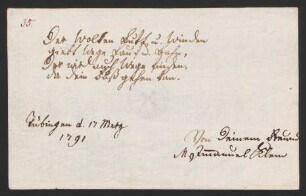 35.
Der Wolken Luft u. Winden
giebt Wege, Lauf u. Bahn,
der wird auch Wege finden,
da dein Fuß gehen kan.
Tübingen d. 17 Merz
1791
Von Deinem Freund
M. Immanuel